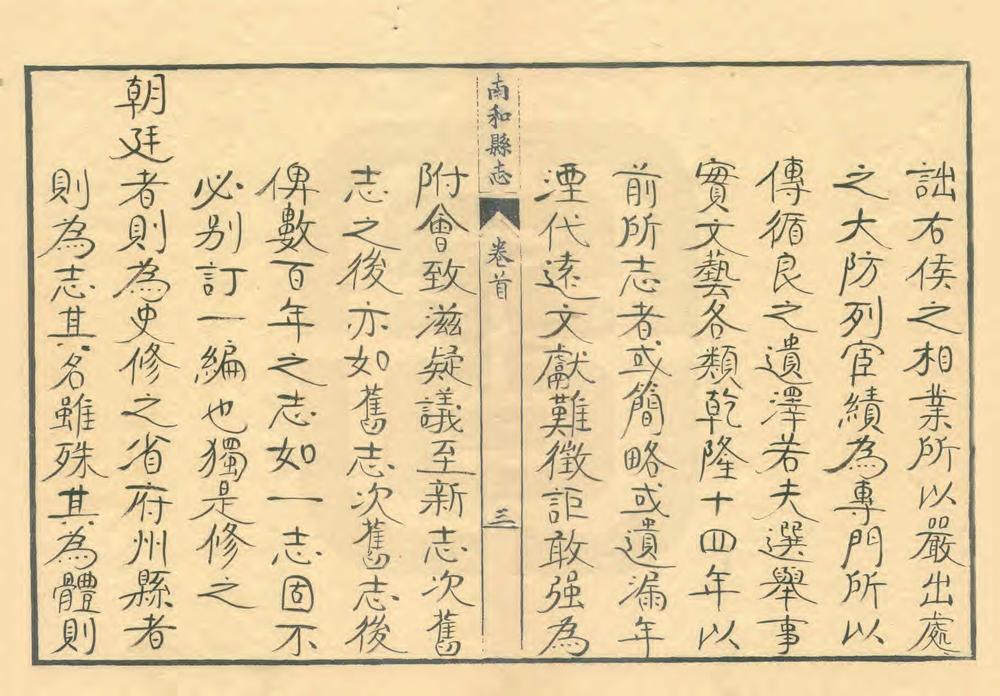 詘右侯之相業所以嚴出處
之大防列宦績為專門所以
傳循良之遺澤若夫選舉事
實文藝各類乾隆十四年以
前所志者或簡略或遺漏年
湮代遠文獻難徵詎敢强為
南和縣志
卷首
三
附會致滋疑議至新志次舊
志之後亦如舊志次舊志後
俾數百年之志如一志固不
必別訂一編也獨是修之
朝廷者則為史修之省府州縣者
則為志其名雖殊其為體則